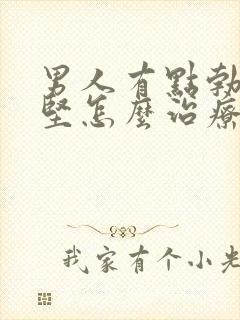 男人有點勃
堅怎麼治療
我家有个小老